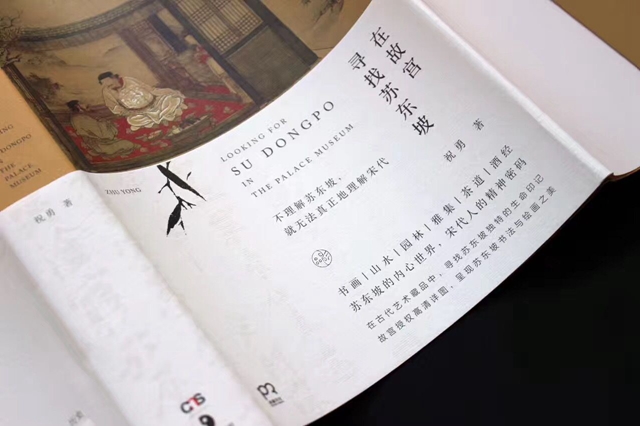 在故宫
寻找苏东坡
祝勇 著
LOOKING FOR
SU DONGPO
IN
THE PALACE MUSEUM
不理解苏东坡，
就无法真正地理解宋代
书画|山水|园林|雅集|茶道|酒经
苏东坡的内心世界，宋代人的精神密码
在古代艺术藏品中，寻找苏东坡独特的生命印记
故宫授权高清详图，呈现苏东坡书法与绘画之美
ZHU YONG
祝勇 著
DONGPO
THE
PALACE
MUSEUM
CTS